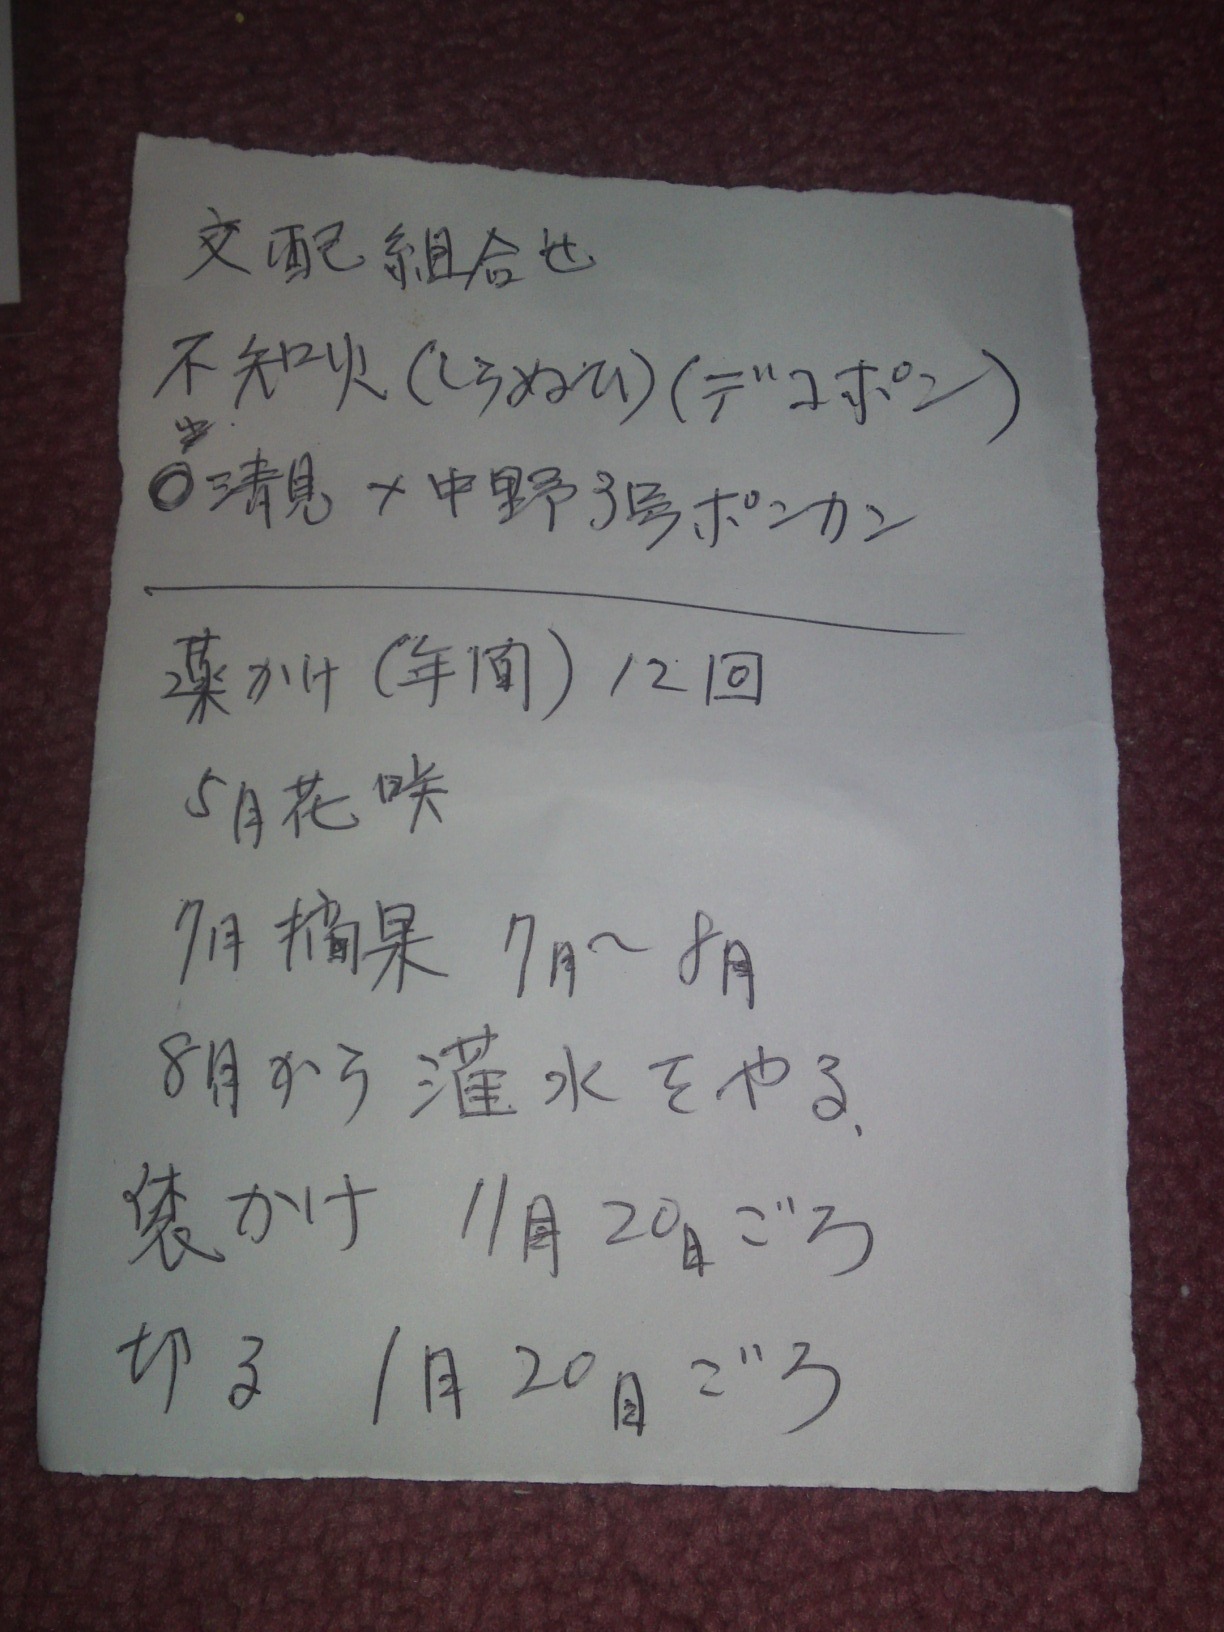 交配組合せ
不知火(しらぬひ)(デコポン)
◎清見×中野3号ポンカン
薬かけ(年間)12回
5月花咲
7月摘果 7月〜8月
8月から灌水をやる、
袋かけ 11月20日ごろ
切る 1月20日ごろ